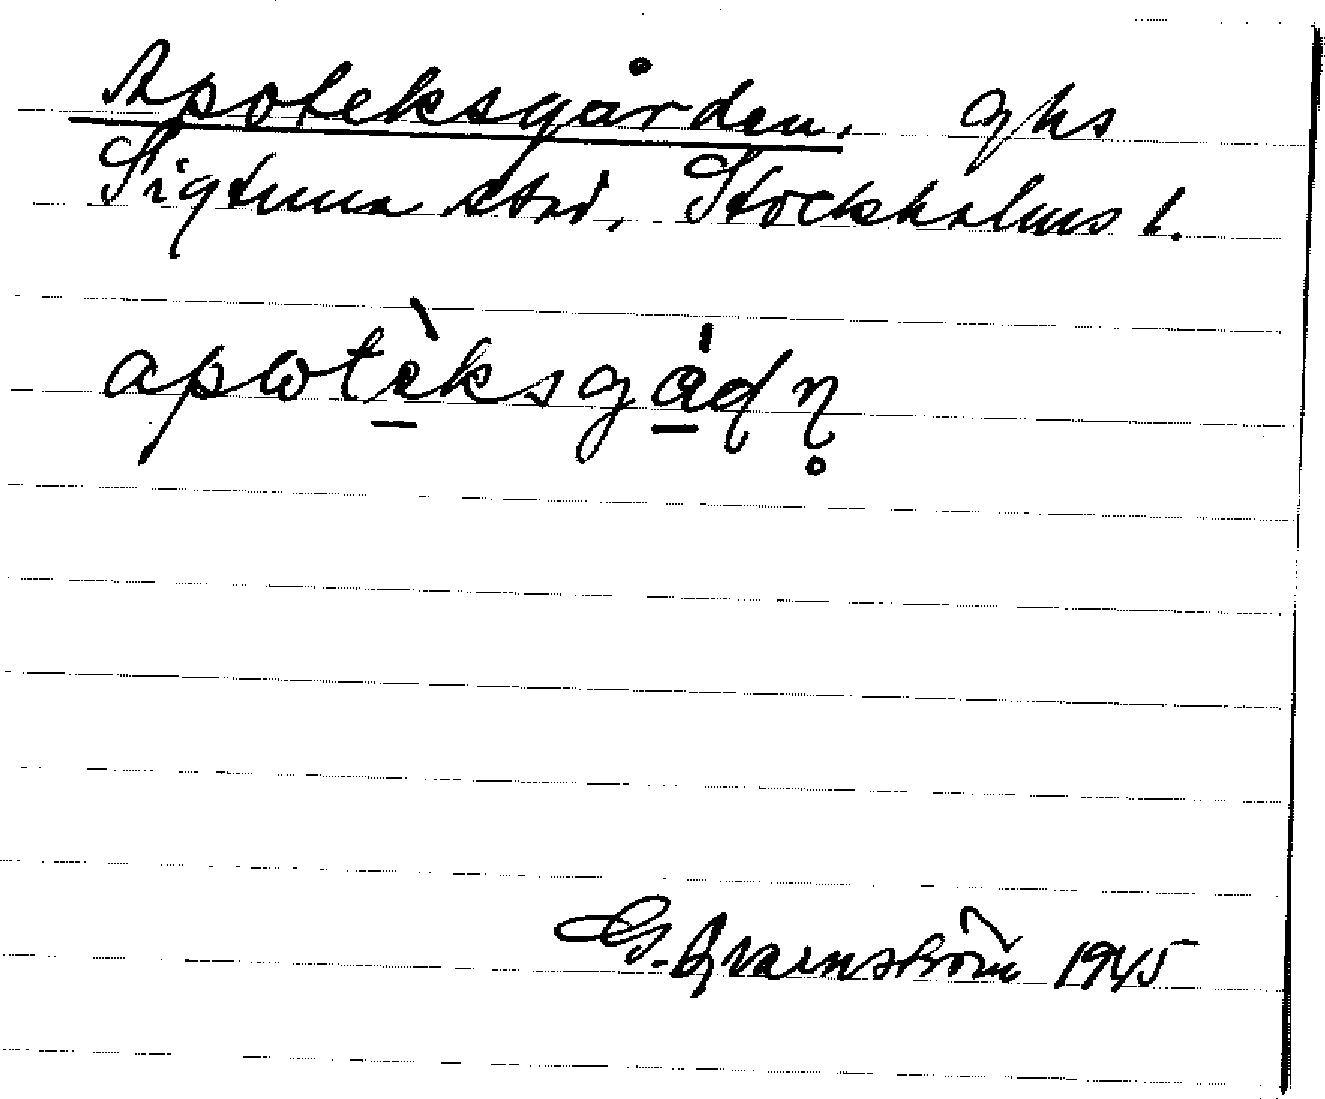 Apoteksgården. ghs
Sigtuna stad, Stockholms l.
apωtèksgȧɖɳ̥
G. Qvarnström 1945